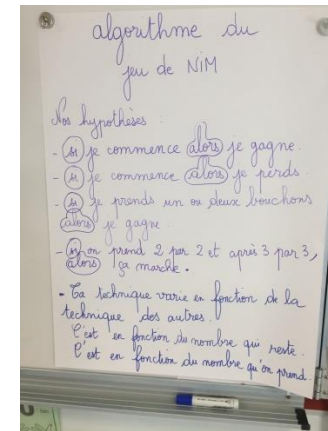 algorithme du
jeu de NiM
Nos hypothèses :
- si je commence alors je gagne.
- si je commence alors je perds.
- si je prends un ou deux bouchons
alors je gagne.
- si on prend 2 par 2 et après 3 par 3,
alors ça marche.
- Ta technique varie en fonction de la
technique des autres.
C'est en fonction du nombre qui reste.
C'est en fonction du nombre qu'on prend.